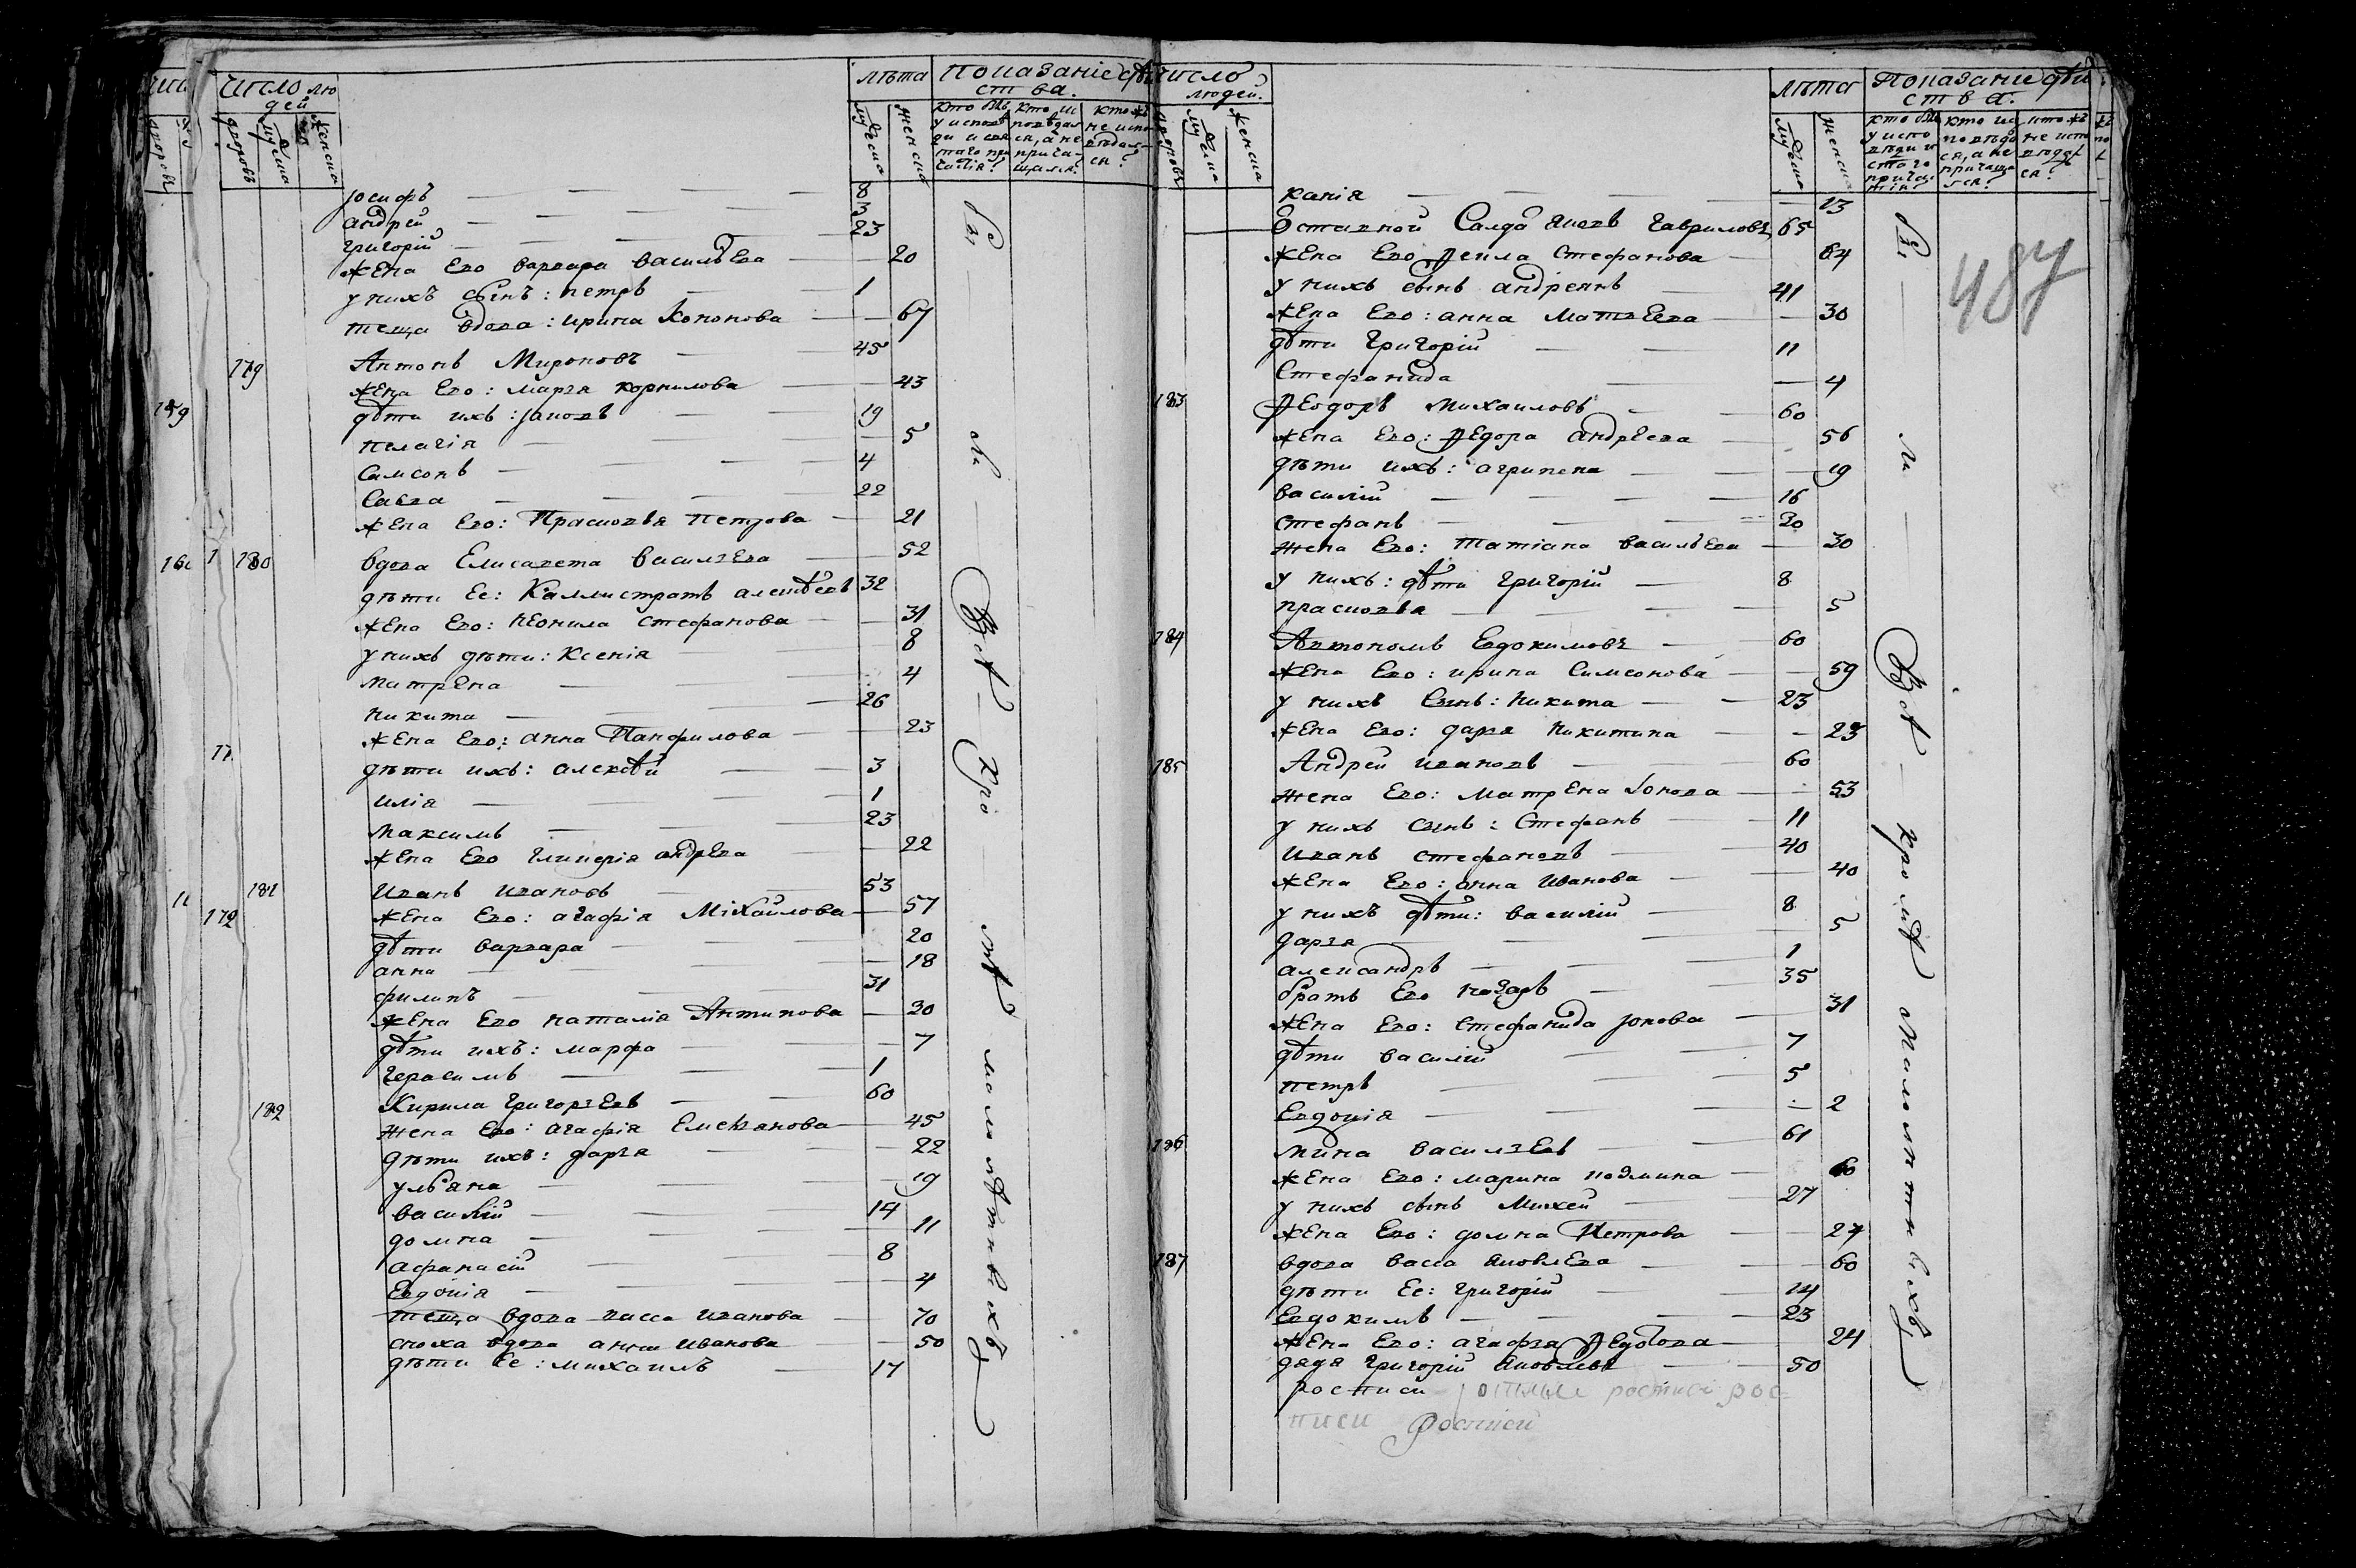 число лю
дей
лѣта
показанїе дѣй
ства.
дворовъ
мужеска
женска
мужеска
женска
Іосифъ 8
андрей 3
григорій 23
жена Его варвара васильева 20
у нихъ сынъ: петръ 1
теща вдова: ирина Кононова 67
179 Антонъ Мироновъ 45
жена Его: марѳа корнилова 43
дѣти ихъ: Іаковъ 19
пелагія 5
Самсонъ 4
Савва 22
жена Его: Прасковья петрова 21
180 вдова Елисавета васильева 52
дѣти Ее: Каллистратъ алексѣевъ 32
жена Его: неонила стефанова 31
у нихъ дѣти: Ксенія 8
матрена 4
никита 26
жена Его: анна Панфилова 23
дѣти ихъ: алексѣй 3
илія 1
максимъ 23
жена Его гликерія андрева 22
181 Иванъ ивановъ 53
жена Его: агафія Міхайлова 57
дѣти варвара 20
анна 18
филипъ 31
жена Его наталія Антипова 30
дѣти ихъ: марфа 7
герасимъ 1
182 Кирила григорьевъ 60
жена Его: агафія Емельянова 45
дѣти ихъ: дарья 22
ульяна 19
василій 14
домна 11
афанасій 8
Евдокія 4
теща вдова васса иванова 70
сноха вдова анна иванова 50
дѣти Ее: михаилъ 17
Бы
ли
Всѣ
кро
мѣ
малолѣтнихъ
число
людей.
лѣта
Показанїе дѣй
ства:
дворовъ
мужеска
женска
мужеска
женска
487
канія 13
Отставной Салдатъ Іаковъ гавриловъ 65
жена Его Ѳекла Стефанова 64
у нихъ сынъ андреянъ 41
жена Его: анна Матвеева 30
дѣти григорій 11
Стефанида 4
183 Ѳеодоръ михаиловъ 60
жена Его: Ѳедора андреева 56
дѣти ихъ: агрипена 19
василій 16
стефанъ 30
жена Его: татіана васильева 30
у нихъ: дѣти григорій 8
прасковья 5
184 Автономъ Евдокимовъ 60
жена Его: ирина Симсонова 59
у нихъ Сынъ: никита 23
жена Его: дарья никитина 23
185 Андрей ивановъ 60
жена Его: матрена Іонова 53
у нихъ сынъ: Стефанъ 11
иванъ стефановъ 40
жена Его: анна иванова 40
у нихъ дѣти: василій 8
дарья 5
александръ 1
братъ Его назаръ 35
жена Его: Стефанида Іонова 31
дѣти василій 7
петръ 5
Евдокія 2
186 мина васильевъ 61
жена Его: марина козмина 60
у нихъ сынъ михей 27
жена Его: домна Петрова 27
187 вдова васса яковлева 60
дѣти Ее: григорій 14
Евдокимъ 23
жена Его: агафья Ѳедотова 24
дядя григорій яковлевъ 50
росписи росписи рос
писи росписи
Бы
ли
Всѣ
кромѣ
малолѣтнихъ